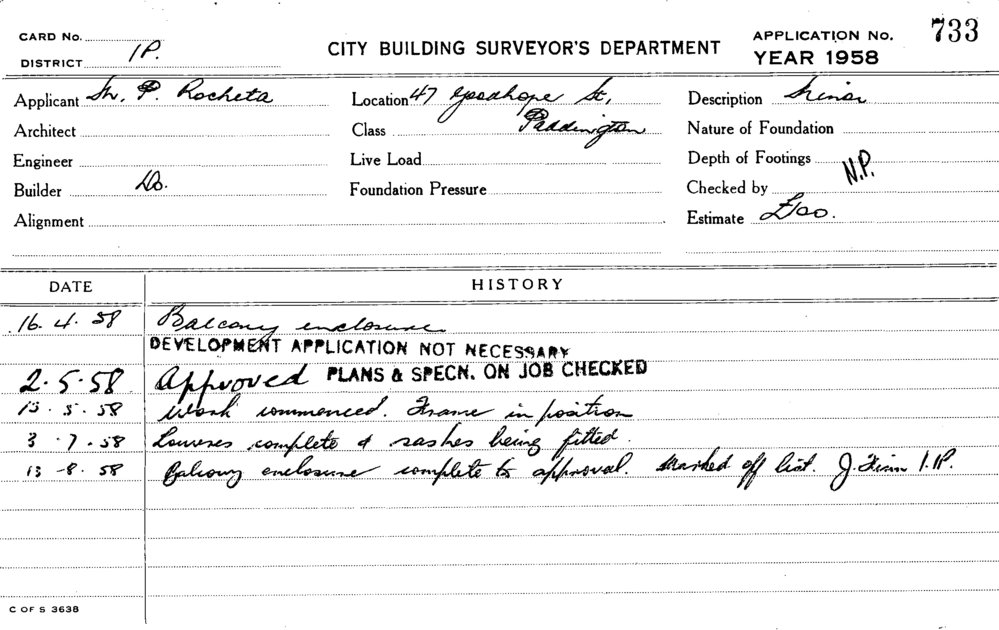 CARD No.
DISTRICT 1P.
CITY BUILDING SURVEYOR'S DEPARTMENT
APPLICATION No. 733
YEAR 1958
Applicant Mr. P. Rocheta
Location 47 Goodhope St,
Paddington
Description Minor
Architect
Class
Nature of Foundation
Engineer
Live Load
Depth of Footings
Builder Do.
Foundation Pressure
Checked by N.P.
Alignment
Estimate £100.
DATE
HISTORY
16. 4. 58 Balcony enclosure
DEVELOPMENT APPLICATION NOT NECESSARY
2. 5. 58 Approved PLANS & SPECN. ON JOB CHECKED
13. 5. 58 Work commenced. Frame in position
3. 7. 58 Louvres complete & sashes being fitted.
13 - 8. 58 Balcony enclosure complete to approval. Marked off list. J. 1.P.
C OF S 3638